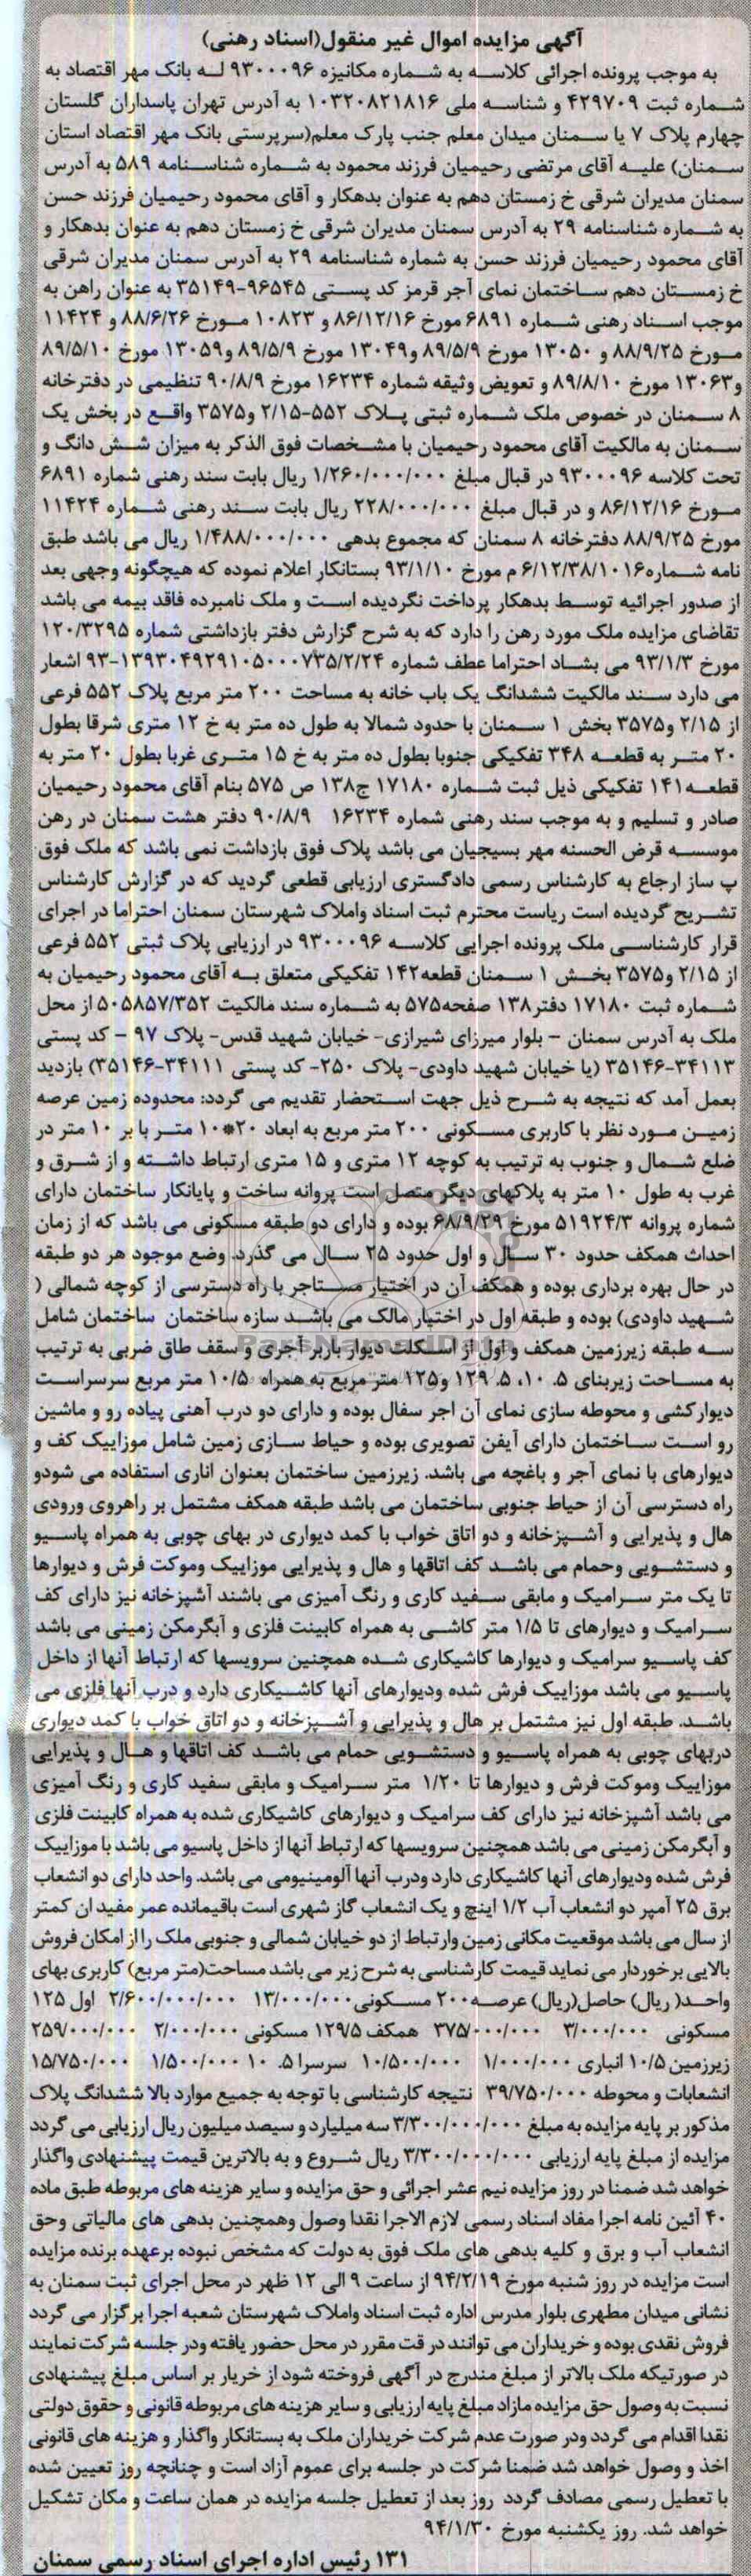 آگهی مزایده اموال غیر منقول(اسناد رهنی)
به موجب پرونده اجرائی کلاسه به شماره مکانیزه ۹۳۰۰۰۹۶ له بانک مهر اقتصاد به
شماره ثبت ۴۲۹۷۰۹ و شناسه ملی ۱۰۳۲۰۸۲۱۸۱۶ به آدرس تهران پاسداران گلستان
چهارم پلاک ۷ یا سمنان میدان معلم جنب پارک معلم(سرپرستی بانک مهر اقتصاد استان
سمنان) علیه آقای مرتضی رحیمیان فرزند محمود به شماره شناسنامه ۵۸۹ به آدرس
سمنان مدیران شرقی خ زمستان دهم به عنوان بدهکار و آقای محمود رحیمیان فرزند حسن
به شماره شناسنامه ۲۹ به آدرس سمنان مدیران شرقی خ زمستان دهم به عنوان بدهکار و
آقای محمود رحیمیان فرزند حسن به شماره شناسنامه ۲۹ به آدرس سمنان مدیران شرقی
خ زمستان دهم ساختمان نمای آجر قرمز کد پستی ۹۶۵۴۵-۳۵۱۴۹ به عنوان راهن به
موجب اسناد رهنی شماره ۶۸۹۱ مورخ ۸۶/۱۲/۱۶ و ۱۰۸۲۳ مورخ ۸۸/۶/۲۶ و ۱۱۴۲۴
مورخ ۸۸/۹/۲۵ و ۱۳۰۵۰ مورخ ۸۹/۵/۹ و۱۳۰۴۹ مورخ ۸۹/۵/۹ و۱۳۰۵۹ مورخ ۸۹/۵/۱۰
و۱۳۰۶۳ مورخ ۸۹/۸/۱۰ و تعویض وثیقه شماره ۱۶۲۳۴ مورخ ۹۰/۸/۹ تنظیمی در دفترخانه
۸ سمنان در خصوص ملک شماره ثبتی پلاک ۵۵۲-۲/۱۵ و۳۵۷۵ واقع در بخش یک
سمنان به مالکیت آقای محمود رحیمیان با مشخصات فوق الذکر به میزان شش دانگ و
تحت کلاسه ۹۳۰۰۰۹۶ در قبال مبلغ ۱/۲۶۰/۰۰۰/۰۰۰ ریال بابت سند رهنی شماره ۶۸۹۱
مورخ ۸۶/۱۲/۱۶ و در قبال مبلغ ۲۲۸/۰۰۰/۰۰۰ ریال بابت سند رهنی شماره ۱۱۴۲۴
مورخ ۸۸/۹/۲۵ دفترخانه ۸ سمنان که مجموع بدهی ۱/۴۸۸/۰۰۰/۰۰۰ ریال می باشد طبق
نامه شماره۶/۱۲/۳۸/۱۰۱۶ م مورخ ۹۳/۱/۱۰ بستانکار اعلام نموده که هیچگونه وجهی بعد
از صدور اجرائیه توسط بدهکار پرداخت نگردیده است و ملک نامبرده فاقد بیمه می باشد
تقاضای مزایده ملک مورد رهن را دارد که به شرح گزارش دفتر بازداشتی شماره ۱۲۰/۳۲۹۵
مورخ ۹۳/۱/۳ می بشاد احتراما عطف شماره ۱۳۹۳۰۴۹۲۹۱۰۵۰۰۰۷۳۵/۲/۲۴-۹۳ اشعار
می دارد سند مالکیت ششدانگ یک باب خانه به مساحت ۲۰۰ متر مربع پلاک ۵۵۲ فرعی
از ۲/۱۵ و۳۵۷۵ بخش ۱ سمنان با حدود شمالا به طول ده متر به خ ۱۲ متری شرقا بطول
۲۰ متر به قطعه ۳۴۸ تفکیکی جنوبا بطول ده متر به خ ۱۵ متری غربا بطول ۲۰ متر به
قطعه۱۴۱ تفکیکی ذیل ثبت شماره ۱۷۱۸۰ ج۱۳۸ ص ۵۷۵ بنام آقای محمود رحیمیان
صادر و تسلیم و به موجب سند رهنی شماره ۱۶۲۳۴ ۹۰/۸/۹ دفتر هشت سمنان در رهن
موسسه قرض الحسنه مهر بسیجیان می باشد پلاک فوق بازداشت نمی باشد که ملک فوق
پ ساز ارجاع به کارشناس رسمی دادگستری ارزیابی قطعی گردید که در گزارش کارشناس
تشریح گردیده است ریاست محترم ثبت اسناد واملاک شهرستان سمنان احتراما در اجرای
قرار کارشناسی ملک پرونده اجرایی کلاسه ۹۳۰۰۰۹۶ در ارزیابی پلاک ثبتی ۵۵۲ فرعی
از ۲/۱۵ و۳۵۷۵ بخش ۱ سمنان قطعه۱۴۲ تفکیکی متعلق به آقای محمود رحیمیان به
شماره ثبت ۱۷۱۸۰ دفتر۱۳۸ صفحه۵۷۵ به شماره سند مالکیت ۵۰۵۸۵۷/۳۵۲ از محل
ملک به آدرس سمنان - بلوار میرزای شیرازی- خیابان شهید قدس- پلاک ۹۷ - کد پستی
۳۴۱۱۳-۳۵۱۴۶ (یا خیابان شهید داودی- پلاک ۲۵۰- کد پستی ۳۴۱۱۱-۳۵۱۴۶) بازدید
بعمل آمد که نتیجه به شرح ذیل جهت استحضار تقدیم می گردد: محدوده زمین عرصه
زمین مورد نظر با کاربری مسکونی ۲۰۰ متر مربع به ابعاد ۲۰*۱۰ متر با بر ۱۰ متر در
ضلع شمال و جنوب به ترتیب به کوچه ۱۲ متری و ۱۵ متری ارتباط داشته و از شرق و
غرب به طول ۱۰ متر به پلاکهای دیگر متصل است پروانه ساخت و پایانکار ساختمان دارای
شماره پروانه ۵۱۹۲۴/۳ مورخ ۶۸/۹/۲۹ بوده و دارای دو طبقه مسکونی می باشد که از زمان
احداث همکف حدود ۳۰ سال و اول حدود ۲۵ سال می گذرد. وضع موجود هر دو طبقه
در حال بهره برداری بوده و همکف آن در اختیار مستاجر با راه دسترسی از کوچه شمالی (
شهید داودی) بوده و طبقه اول در اختیار مالک می باشد سازه ساختمان ساختمان شامل
سه طبقه زیرزمین همکف و اول از اسکلت دیوار باربر آجری و سقف طاق ضربی به ترتیب
به مساحت زیربنای ۵. ۱۰، ۵. ۱۲۹ و۱۲۵ متر مربع به همراه ۱۰/۵ متر مربع سرسراست
دیوارکشی و محوطه سازی نمای آن اجر سفال بوده و دارای دو درب آهنی پیاده رو و ماشین
رو است ساختمان دارای آیفن تصویری بوده و حیاط سازی زمین شامل موزاییک کف و
دیوارهای با نمای آجر و باغچه می باشد. زیرزمین ساختمان بعنوان اناری استفاده می شودو
راه دسترسی آن از حیاط جنوبی ساختمان می باشد طبقه همکف مشتمل بر راهروی ورودی
هال و پذیرایی و آشپزخانه و دو اتاق خواب با کمد دیواری در بهای چوبی به همراه پاسیو
و دستشویی وحمام می باشد کف اتاقها و هال و پذیرایی موزاییک وموکت فرش و دیوارها
تا یک متر سرامیک و مابقی سفید کاری و رنگ آمیزی می باشند آشپزخانه نیز دارای کف
سرامیک و دیوارهای تا ۱/۵ متر کاشی به همراه کابینت فلزی و آبگرمکن زمینی می باشد
کف پاسیو سرامیک و دیوارها کاشیکاری شده همچنین سرویسها که ارتباط آنها از داخل
پاسیو می باشد موزاییک فرش شده ودیوارهای آنها کاشیکاری دارد و درب آنها فلزی می
باشد. طبقه اول نیز مشتمل بر هال و پذیرایی و آشپزخانه و دو اتاق خواب با کمد دیواری
دربهای چوبی به همراه پاسیو و دستشویی حمام می باشد کف اتاقها و هال و پذیرایی
موزاییک وموکت فرش و دیوارها تا ۱/۲۰ متر سرامیک و مابقی سفید کاری و رنگ آمیزی
می باشد آشپزخانه نیز دارای کف سرامیک و دیوارهای کاشیکاری شده به همراه کابینت فلزی
و آبگرمکن زمینی می باشد همچنین سرویسها که ارتباط آنها از داخل پاسیو می باشد با موزاییک
فرش شده ودیوارهای آنها کاشیکاری دارد ودرب آنها آلومینیومی می باشد. واحد دارای دو انشعاب
برق ۲۵ آمپر دو انشعاب آب ۱/۲ اینچ و یک انشعاب گاز شهری است باقیمانده عمر مفید ان کمتر
از سال می باشد موقعیت مکانی زمین وارتباط از دو خیابان شمالی و جنوبی ملک را از امکان فروش
بالایی برخوردار می نماید قیمت کارشناسی به شرح زیر می باشد مساحت(متر مربع) کاربری بهای
واحد( ریال) حاصل(ریال) عرصه۲۰۰ مسکونی۱۳/۰۰۰/۰۰۰ ۲/۶۰۰/۰۰۰/۰۰۰ اول ۱۲۵
مسکونی ۳/۰۰۰/۰۰۰ ۳۷۵/۰۰۰/۰۰۰ همکف ۱۲۹/۵ مسکونی ۲/۰۰۰/۰۰۰ ۲۵۹/۰۰۰/۰۰۰
زیرزمین ۱۰/۵ انباری ۱/۰۰۰/۰۰۰ ۱۰/۵۰۰/۰۰۰ سرسرا ۵. ۱۰ ۱/۵۰۰/۰۰۰ ۱۵/۷۵۰/۰۰۰
انشعابات و محوطه ۳۹/۷۵۰/۰۰۰ نتیجه کارشناسی با توجه به جمیع موارد بالا ششدانگ پلاک
مذکور بر پایه مزایده به مبلغ ۳/۳۰۰/۰۰۰/۰۰۰ سه میلیارد و سیصد میلیون ریال ارزیابی می گردد
مزایده از مبلغ پایه ارزیابی ۳/۳۰۰/۰۰۰/۰۰۰ ریال شروع و به بالاترین قیمت پیشنهادی واگذار
خواهد شد ضمنا در روز مزایده نیم عشر اجرائی و حق مزایده و سایر هزینه های مربوطه طبق ماده
۴۰ آئین نامه اجرا مفاد اسناد رسمی لازم الاجرا نقدا وصول وهمچنین بدهی های مالیاتی وحق
انشعاب آب و برق و کلیه بدهی های ملک فوق به دولت که مشخص نبوده برعهده برنده مزایده
است مزایده در روز شنبه مورخ ۹۴/۲/۱۹ از ساعت ۹ الی ۱۲ ظهر در محل اجرای ثبت سمنان به
نشانی میدان مطهری بلوار مدرس اداره ثبت اسناد واملاک شهرستان شعبه اجرا برگزار می گردد
فروش نقدی بوده و خریداران می توانند در قت مقرر در محل حضور یافته ودر جلسه شرکت نمایند
در صورتیکه ملک بالاتر از مبلغ مندرج در آگهی فروخته شود از خریار بر اساس مبلغ پیشنهادی
نسبت به وصول حق مزایده مازاد مبلغ پایه ارزیابی و سایر هزینه های مربوطه قانونی و حقوق دولتی
نقدا اقدام می گردد ودر صورت عدم شرکت خریداران ملک به بستانکار واگذار و هزینه های قانونی
اخذ و وصول خواهد شد ضمنا شرکت در جلسه برای عموم آزاد است و چنانچه روز تعیین شده
با تعطیل رسمی مصادف گردد روز بعد از تعطیل جلسه مزایده در همان ساعت و مکان تشکیل
خواهد شد. روز یکشنبه مورخ ۹۴/۱/۳۰
۱۳۱ رئیس اداره اجرای اسناد رسمی سمنان